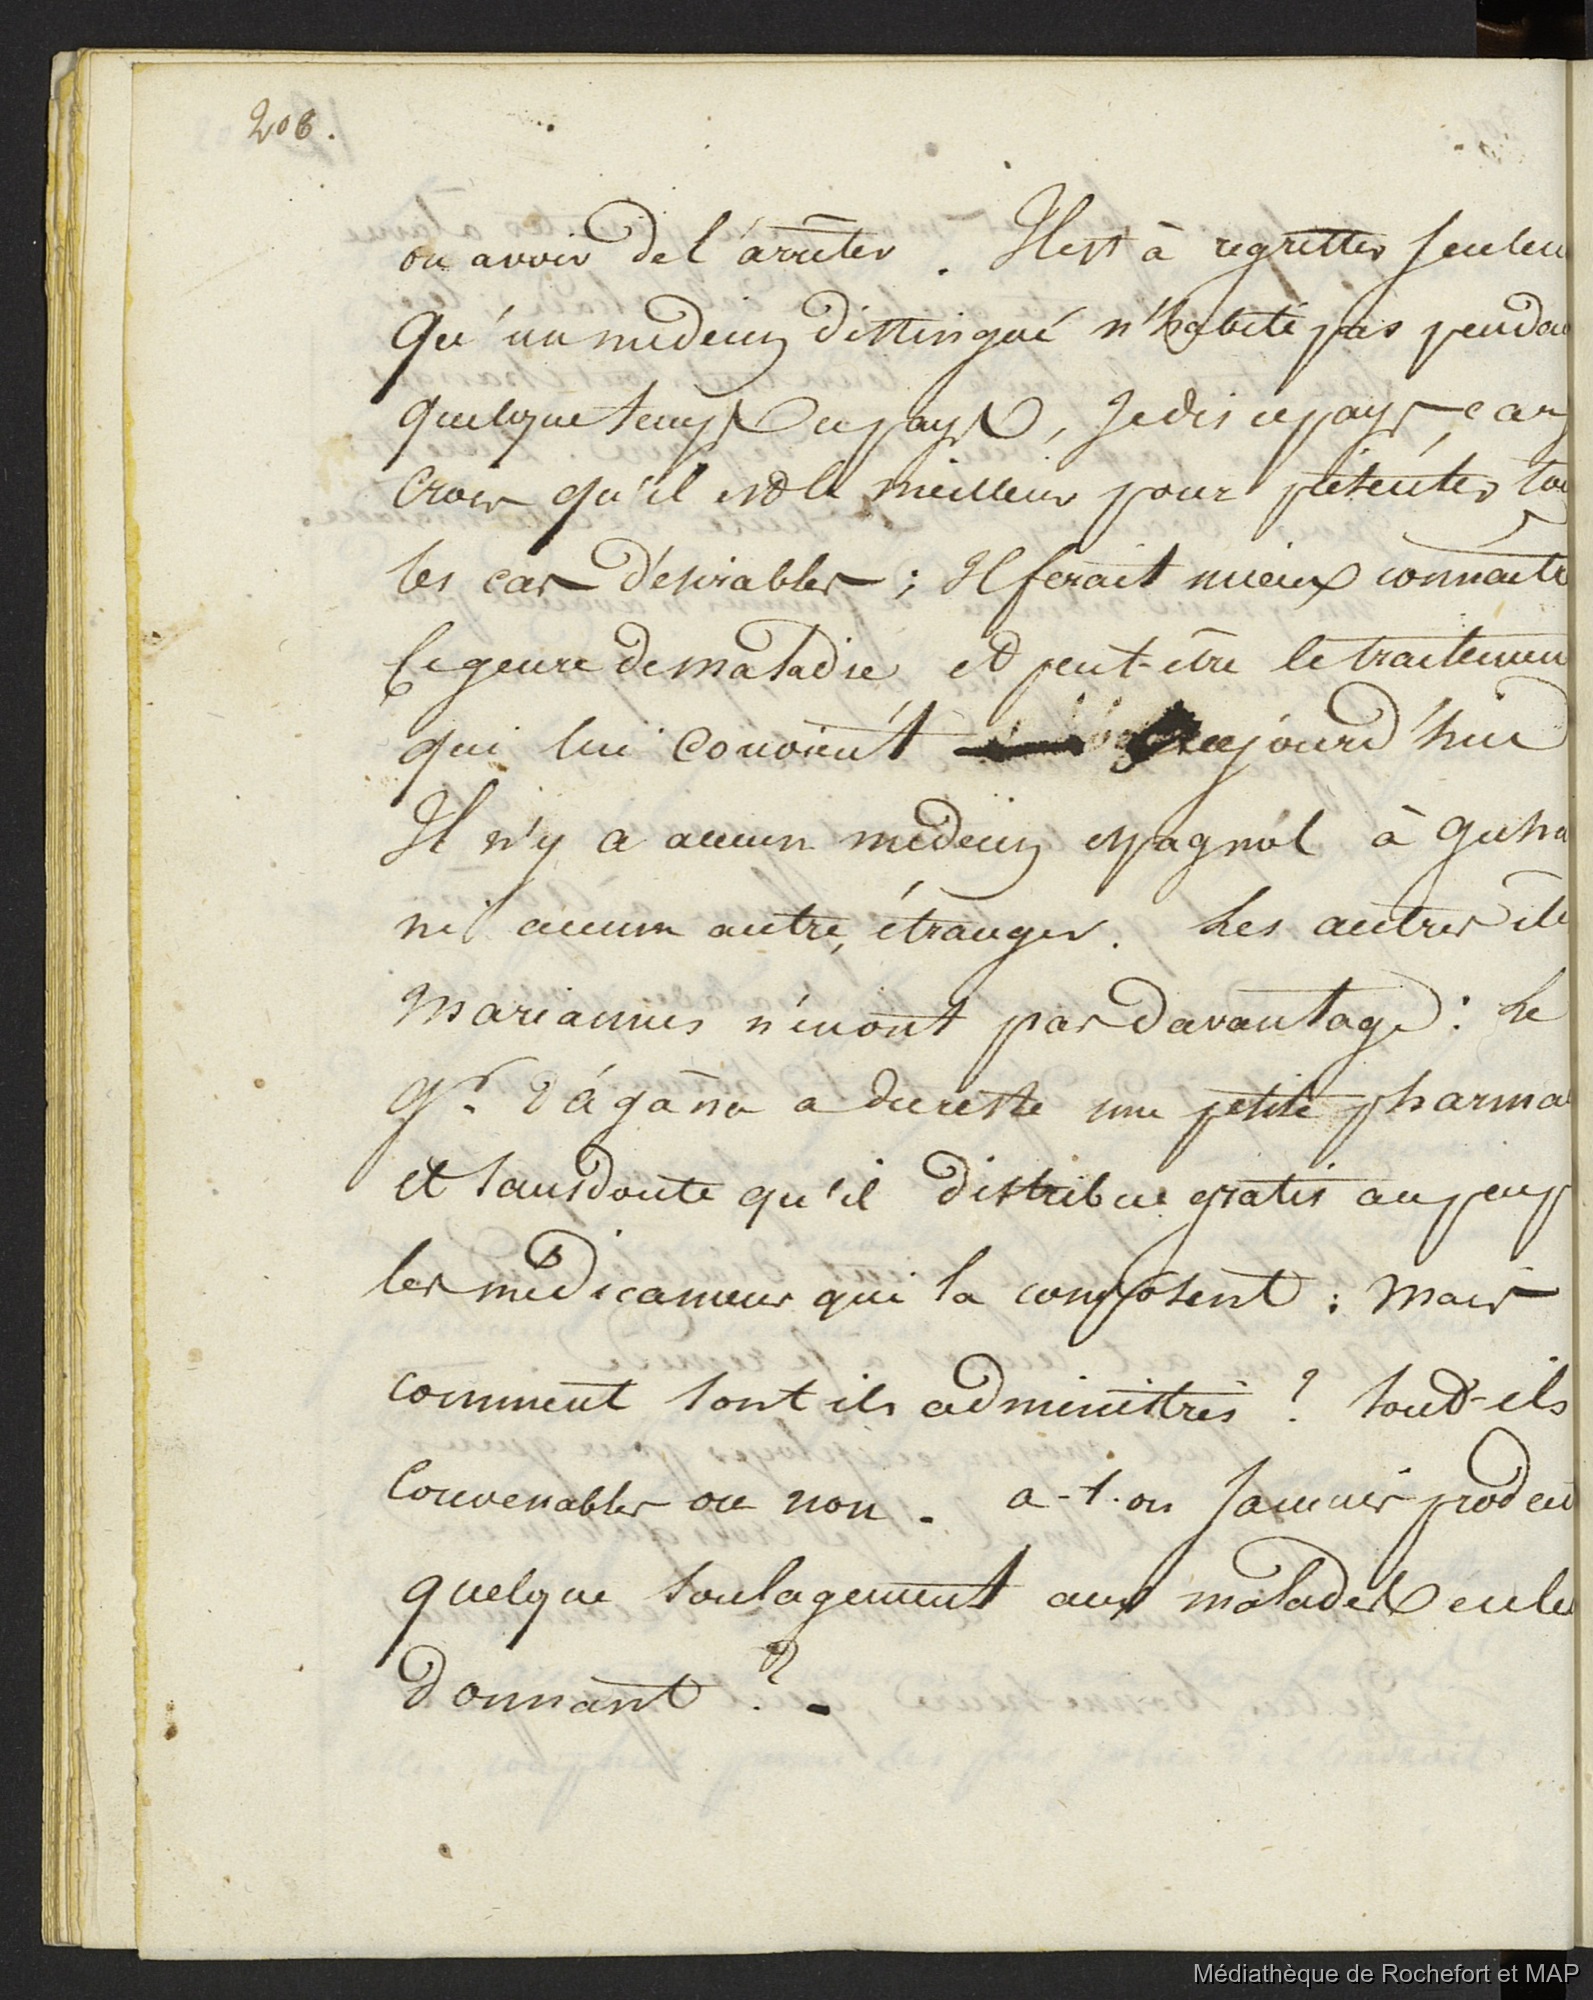 208.
ou avoir de l'arrêter. Il est à regretter seulem
Qu'un medecin distingué n'habite pas penda
quelque temps ce pays, Je dis ce pays, car j
Crois qu'il est le meilleur pour présenter to
les cas désirables ; Il ferait mieux connaitr
le genre de maladie et peut-être le traitemen
qui lui convient aujourd'hui
Il n'y a aucun médecin espagnol à Guha
ni aucun autre étranger. Les autres île
Mariannes n'en ont pas davantage : Le
Gr. d'ágāna a du reste une petite pharma
et sans doute qu'il distribue gratis au peup
les médicamens qui la composent : Mais
comment sont ils administrés ? Sont-ils
Convenables ou non. a-t-on Jamais produi
quelque soulagement aux malades en les
donnant ? -
Médiathèque de Rochefort et MAP